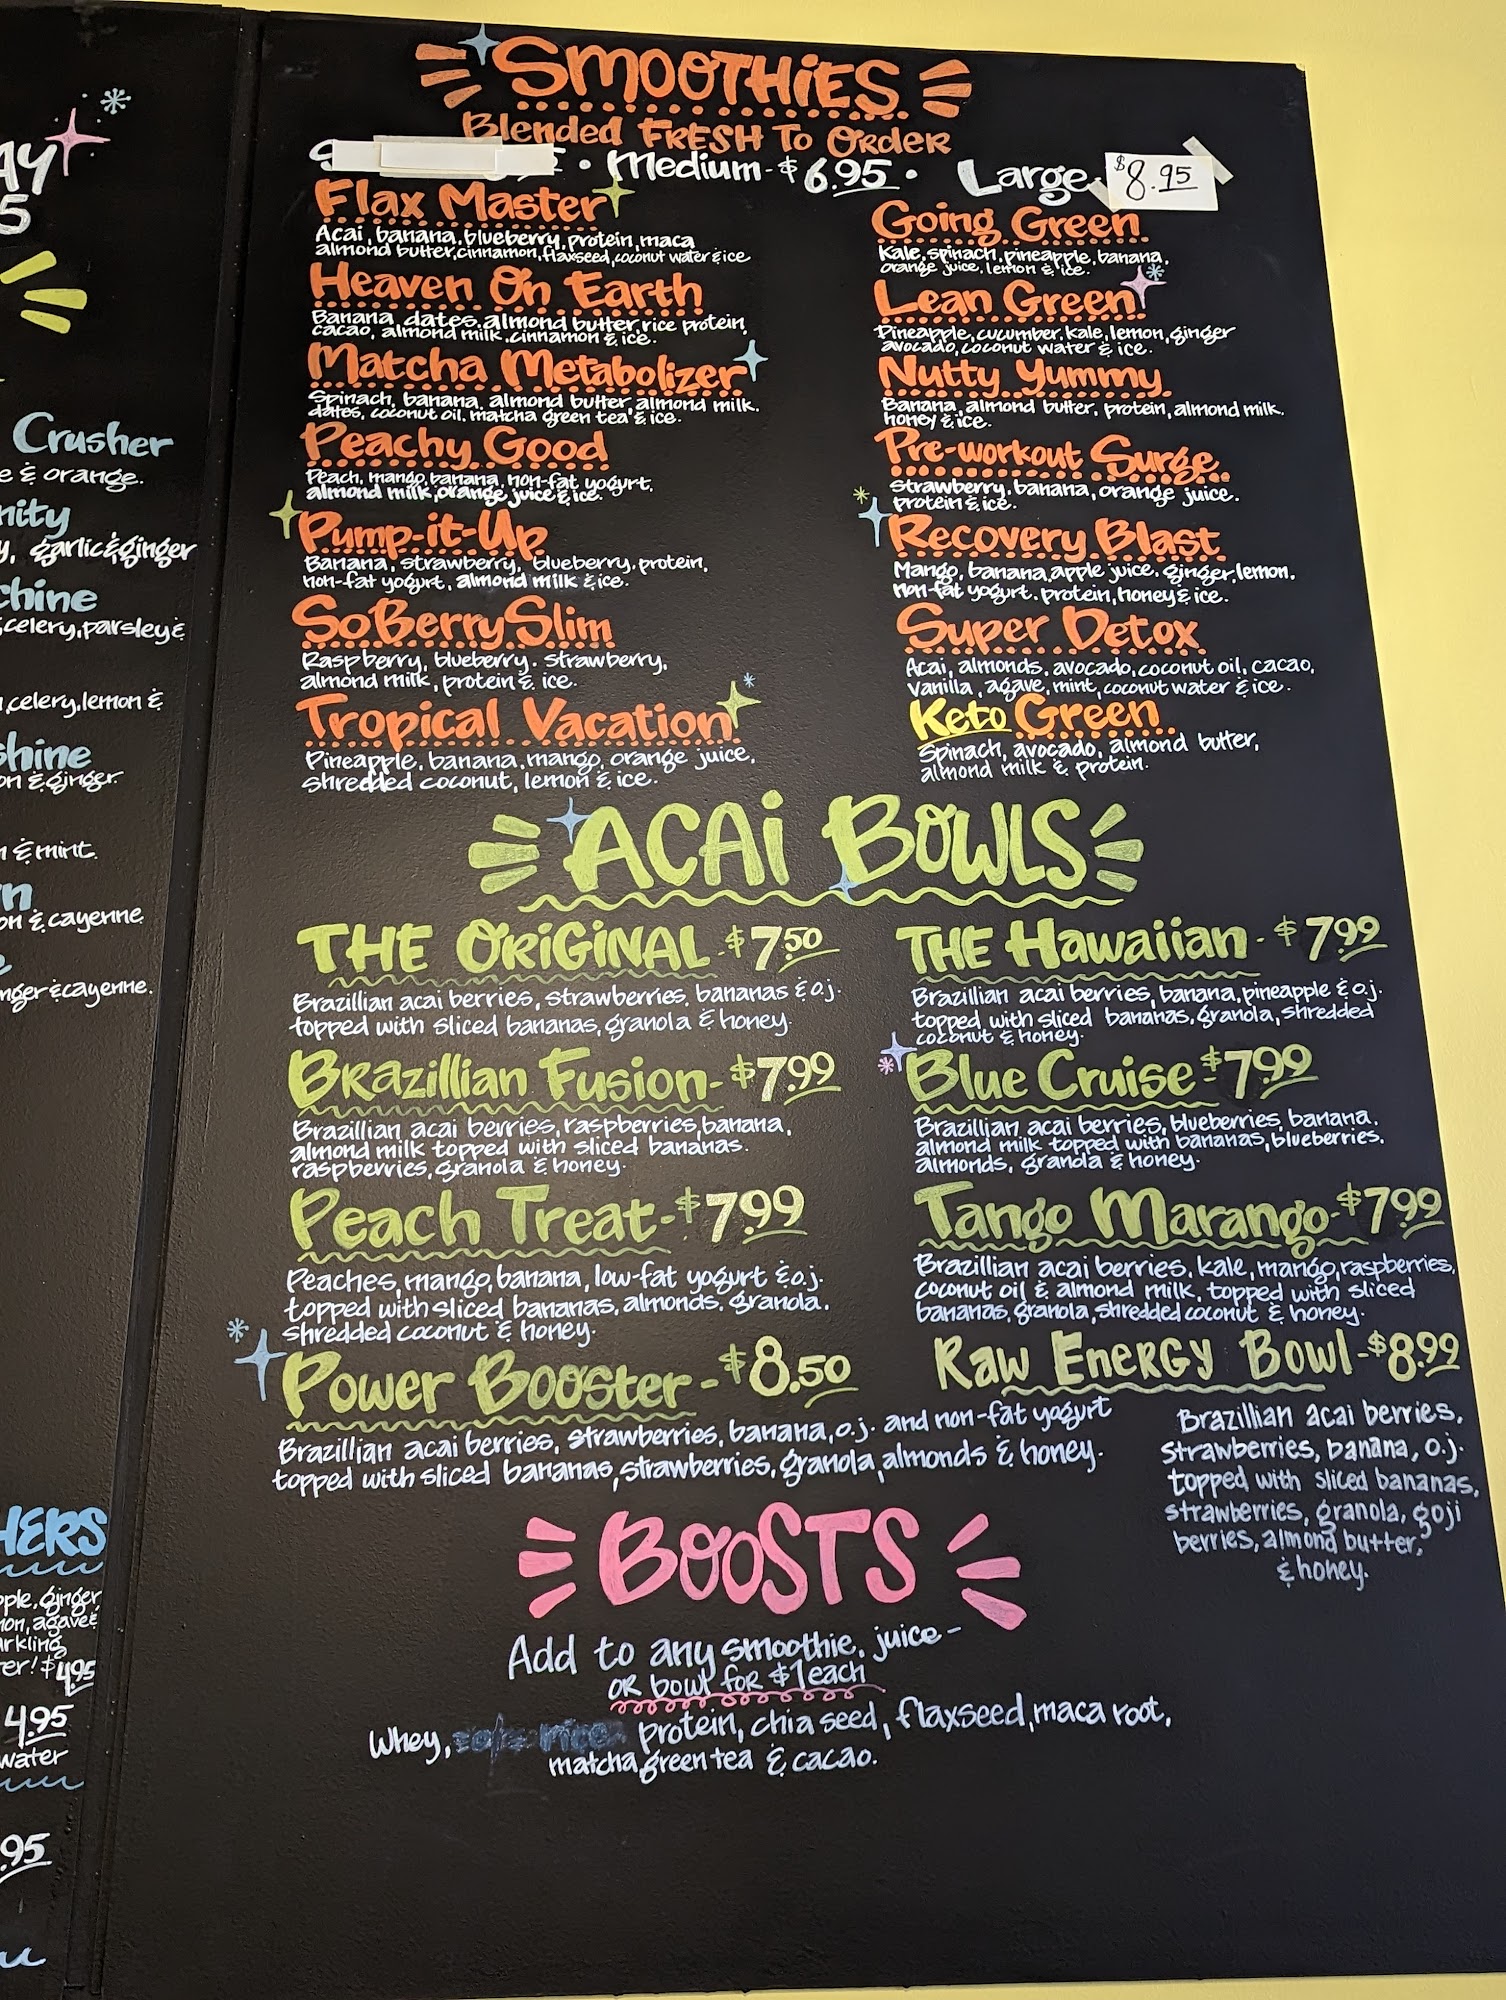 AY
5
Crusher
e & orange.
nity
y, garlic & ginger
chine
celery, parsley &
celery, lemon &
shine
on & ginger
n & mint.
n
on & cayenne
e
nger & cayenne.
HERS
ple, ginger,
on, agave &
arkling
er! $4.95
4.95
water
.95
SMOOTHiES
Blended FRESH To OrdeR
Medium - $6.95 · Large $8.95
Flax Master
Acai, banana, blueberry, protein, maca
almond butter, cinnamon, flaxseed, coconut water & ice
Heaven On Earth
Banana, dates, almond butter, rice protein,
cacao, almond milk, cinnamon & ice.
Matcha Metabolizer
Spinach, banana, almond butter, almond milk,
dates, coconut oil, matcha green tea & ice.
Peachy Good
Peach, mango, banana, non-fat yogurt,
almond milk, orange juice & ice.
Pump-it-Up
Banana, strawberry, blueberry, protein,
non-fat yogurt, almond milk & ice.
SoBerry Slim
Raspberry, blueberry, strawberry,
almond milk, protein & ice.
Tropical Vacation
Pineapple, banana, mango, orange juice,
shredded coconut, lemon & ice.
Going Green
Kale, spinach, pineapple, banana,
orange juice, lemon & ice.
Lean Green
Pineapple, cucumber, kale, lemon, ginger
avocado, coconut water & ice.
Nutty Yummy
Banana, almond butter, protein, almond milk,
honey & ice.
Pre-workout Surge
Strawberry, banana, orange juice,
protein & ice.
Recovery Blast
Mango, banana, apple juice, ginger, lemon,
non-fat yogurt, protein, honey & ice.
Super Detox
Acai, almonds, avocado, coconut oil, cacao,
vanilla, agave, mint, coconut water & ice.
Keto Green
Spinach, avocado, almond butter,
almond milk & protein.
ACAi BOWLS
THE ORiGiNAL - $7.50
Brazillian acai berries, strawberries, bananas & o.j.
topped with sliced bananas, granola & honey.
Brazillian Fusion - $7.99
Brazillian acai berries, raspberries, banana,
almond milk topped with sliced bananas,
raspberries, granola & honey.
Peach Treat - $7.99
Peaches, mango, banana, low-fat yogurt & o.j.
topped with sliced bananas, almonds, granola,
shredded coconut & honey.
Power Booster - $8.50
Brazillian acai berries, strawberries, banana, o.j. and non-fat yogurt
topped with sliced bananas, strawberries, granola, almonds & honey.
THE Hawaiian - $7.99
Brazillian acai berries, banana, pineapple & o.j.
topped with sliced bananas, granola, shredded
coconut & honey.
Blue Cruise - $7.99
Brazillian acai berries, blueberries, banana,
almond milk topped with bananas, blueberries,
almonds, granola & honey.
Tango Marango - $7.99
Brazillian acai berries, kale, mango, raspberries,
coconut oil & almond milk, topped with sliced
bananas, granola, shredded coconut & honey.
Raw Energy Bowl - $8.99
Brazillian acai berries,
strawberries, banana, o.j.
topped with sliced bananas,
strawberries, granola, goji
berries, almond butter,
& honey.
BOOSTS
Add to any smoothie, juice -
OR bowl for $1 each
Whey, protein, chia seed, flaxseed, maca root,
matcha green tea & cacao.